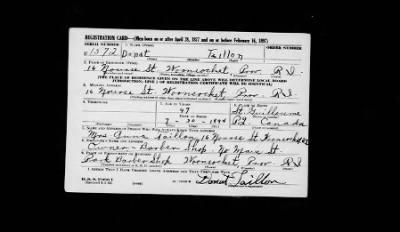 REGISTRATION CARD—(Men born on or after April 28, 1877 and on or before February 16, 1897)
SERIAL NUMBER 1. NAME (Print) ORDER NUMBER
U 1572 Donat Taillon
2. PLACE OF RESIDENCE (Print)
16 Nourse St Woonsocket Prov. R.I.
[THE PLACE OF RESIDENCE GIVEN ON THE LINE ABOVE WILL DETERMINE LOCAL BOARD
JURISDICTION; LINE 2 OF REGISTRATION CERTIFICATE WILL BE IDENTICAL]
3. MAILING ADDRESS
16 Nourse St Woonsocket Prov. R.I.
4. TELEPHONE 5. AGE IN YEARS 6. PLACE OF BIRTH
47 St. Guillaume
DATE OF BIRTH
1894 P.Q. Canada
7. NAME AND ADDRESS OF PERSON WHO WILL ALWAYS KNOW YOUR ADDRESS
Mrs Anna Taillon, 16 Nourse St Woonsocket
8. EMPLOYER'S NAME AND ADDRESS
Owner - Barber Shop No Main St.
9. PLACE OF EMPLOYMENT OR BUSINESS
Park Barber Shop Woonsocket Prov R.I.
I AFFIRM THAT I HAVE VERIFIED ABOVE ANSWERS AND THAT THEY ARE TRUE.
D. S. S. Form 1
Donat Taillon